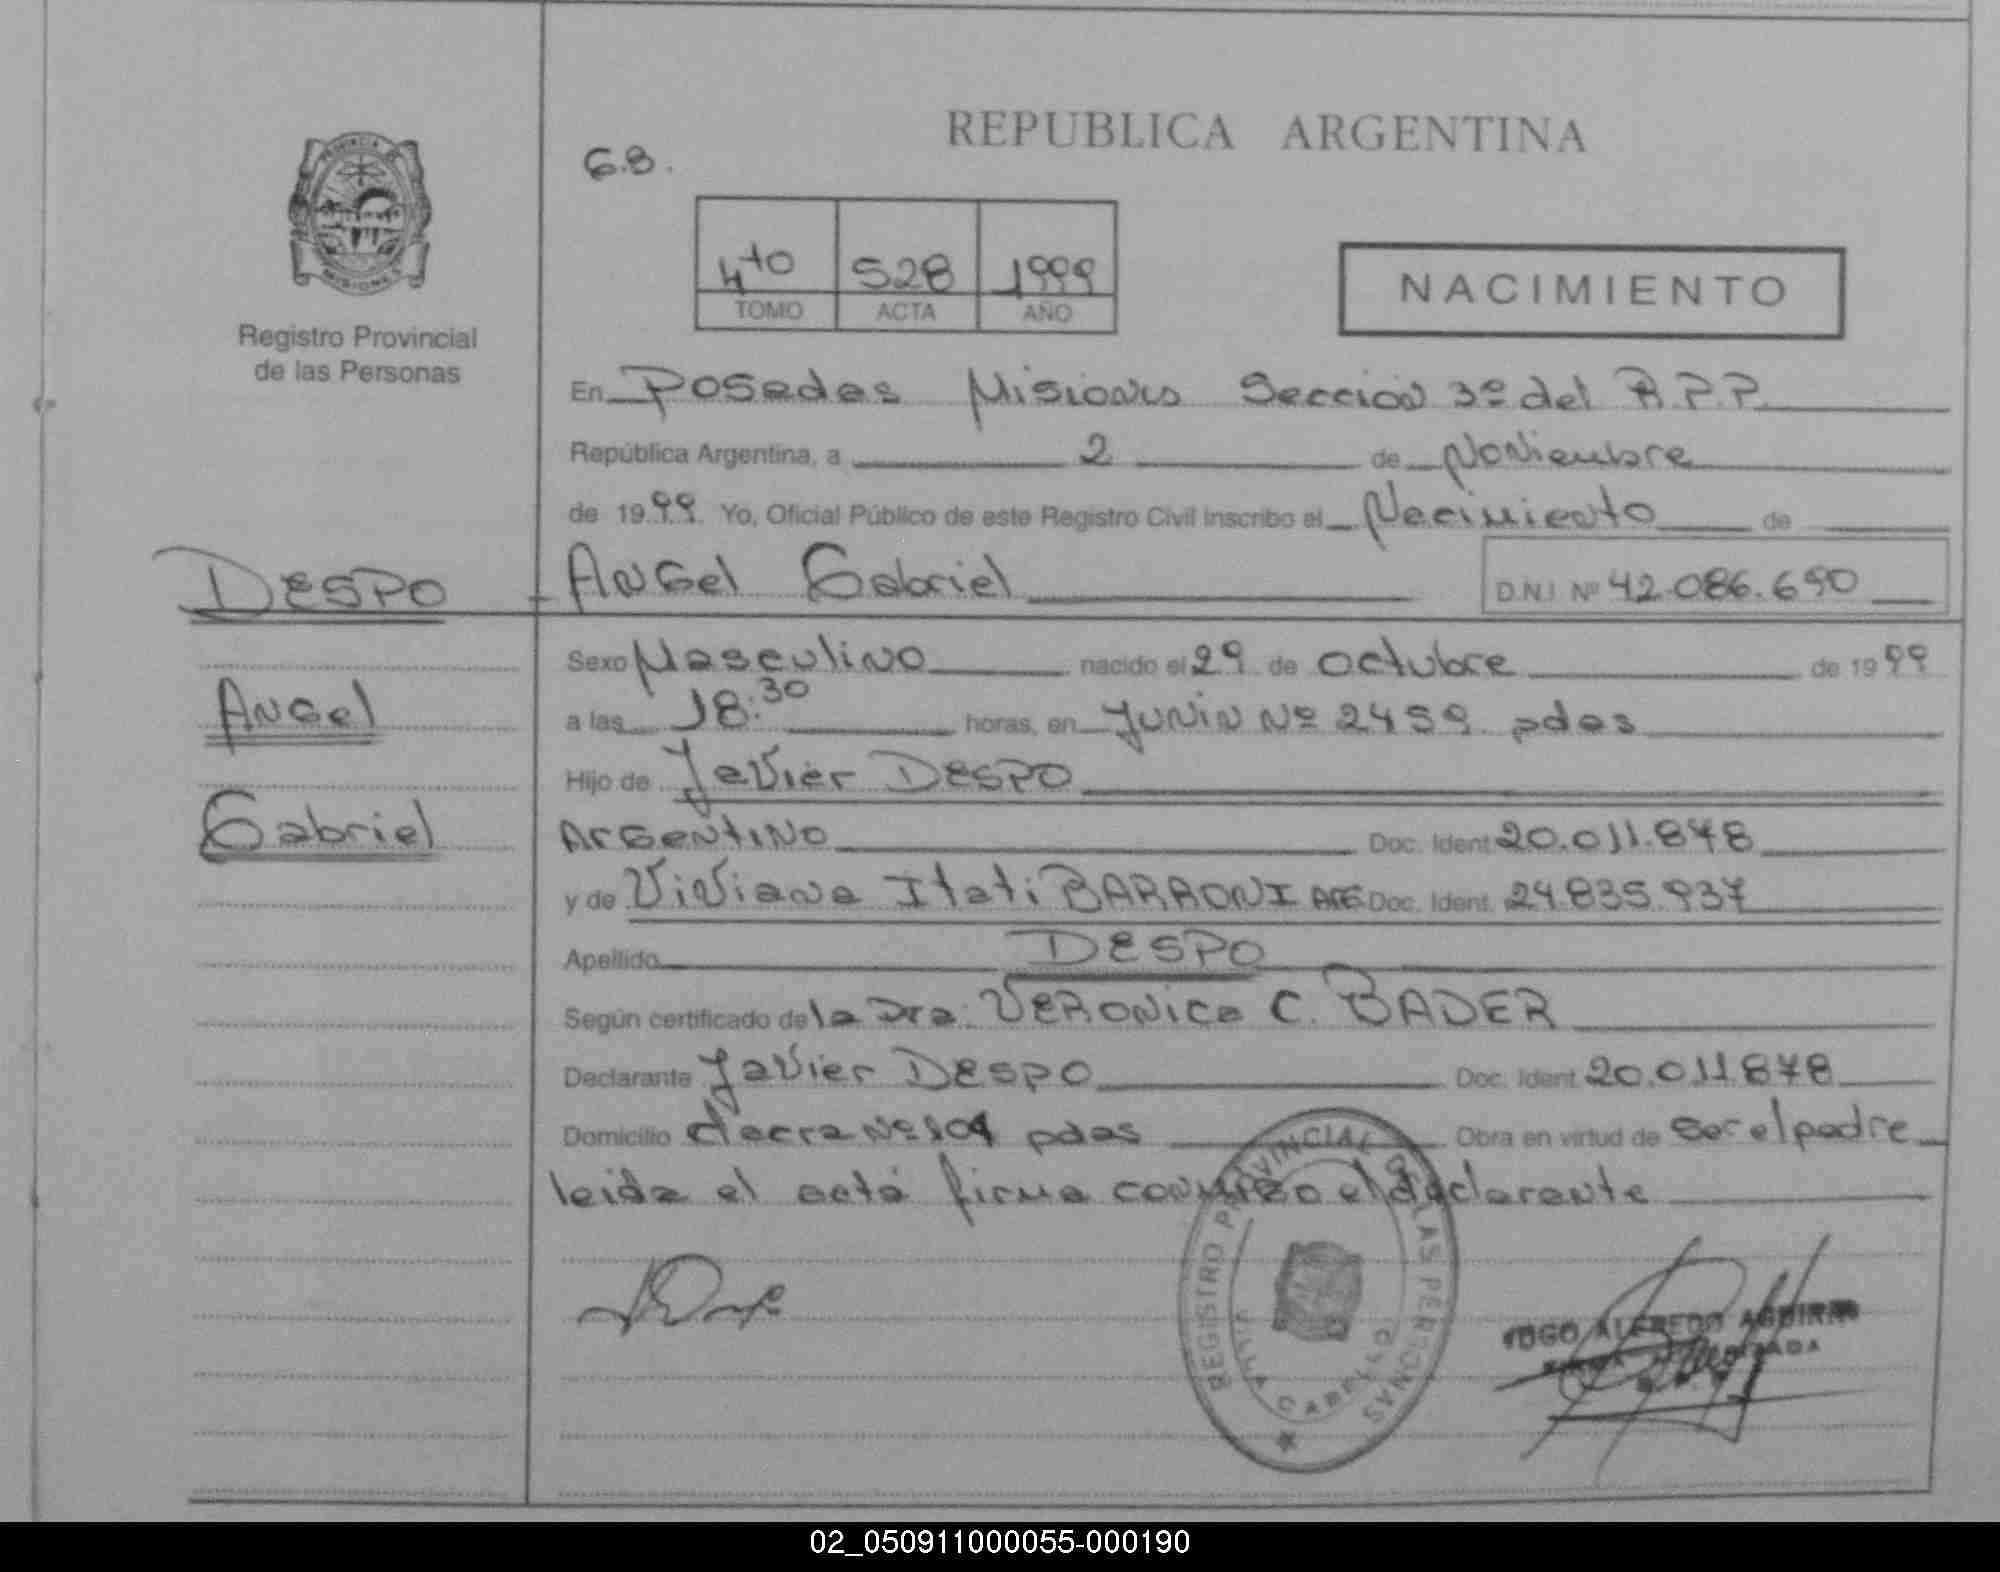 PROVINCIA DE
MISIONES
Registro Provincial
de las Personas
G.B.
REPUBLICA ARGENTINA
4to 528 1999
TOMO ACTA AÑO
NACIMIENTO
En Posadas Misiones Sección 3º del R.P.P.
República Argentina, a 2 de Noviembre
de 1999 Yo, Oficial Público de este Registro Civil Inscribo el Nacimiento de
DESPO Angel Gabriel D.N.I. Nº 42.086.690
Sexo Masculino nacido el 29 de octubre de 1999
Angel
a las 18:30 horas, en Junin Nº 2459 pdas
Hijo de Javier DESPO
Gabriel
Argentino Doc. Ident. 20.011.878
y de Viviana Itati BARRONI ARG Doc. Ident. 24.835.937
Apellido DESPO
Según certificado de la Dra. VERONica C. BADER
Declarante Javier DESPO Doc. Ident. 20.011.878
Domicilio chacra Nº 104 pdas Obra en virtud de Ser el padre
leida el acta firma conmigo el declarante
REGISTRO PROVINCIAL DE LAS PERSONAS
VILLA CABELLO
ALFREDO
02_050911000055-000190